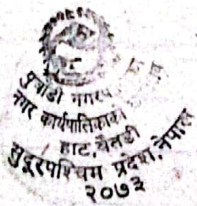 पुर्चौडी नगरपालिका
नगर कार्यपालिकाको
हाट, बैतडी
सुदूरपश्चिम प्रदेश, नेपाल
२०७३